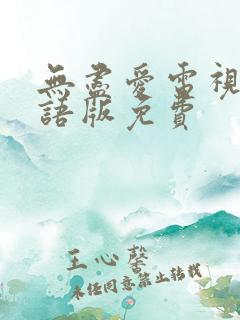 無盡愛電視
語版免費
王心馨
未經同意禁止轉載